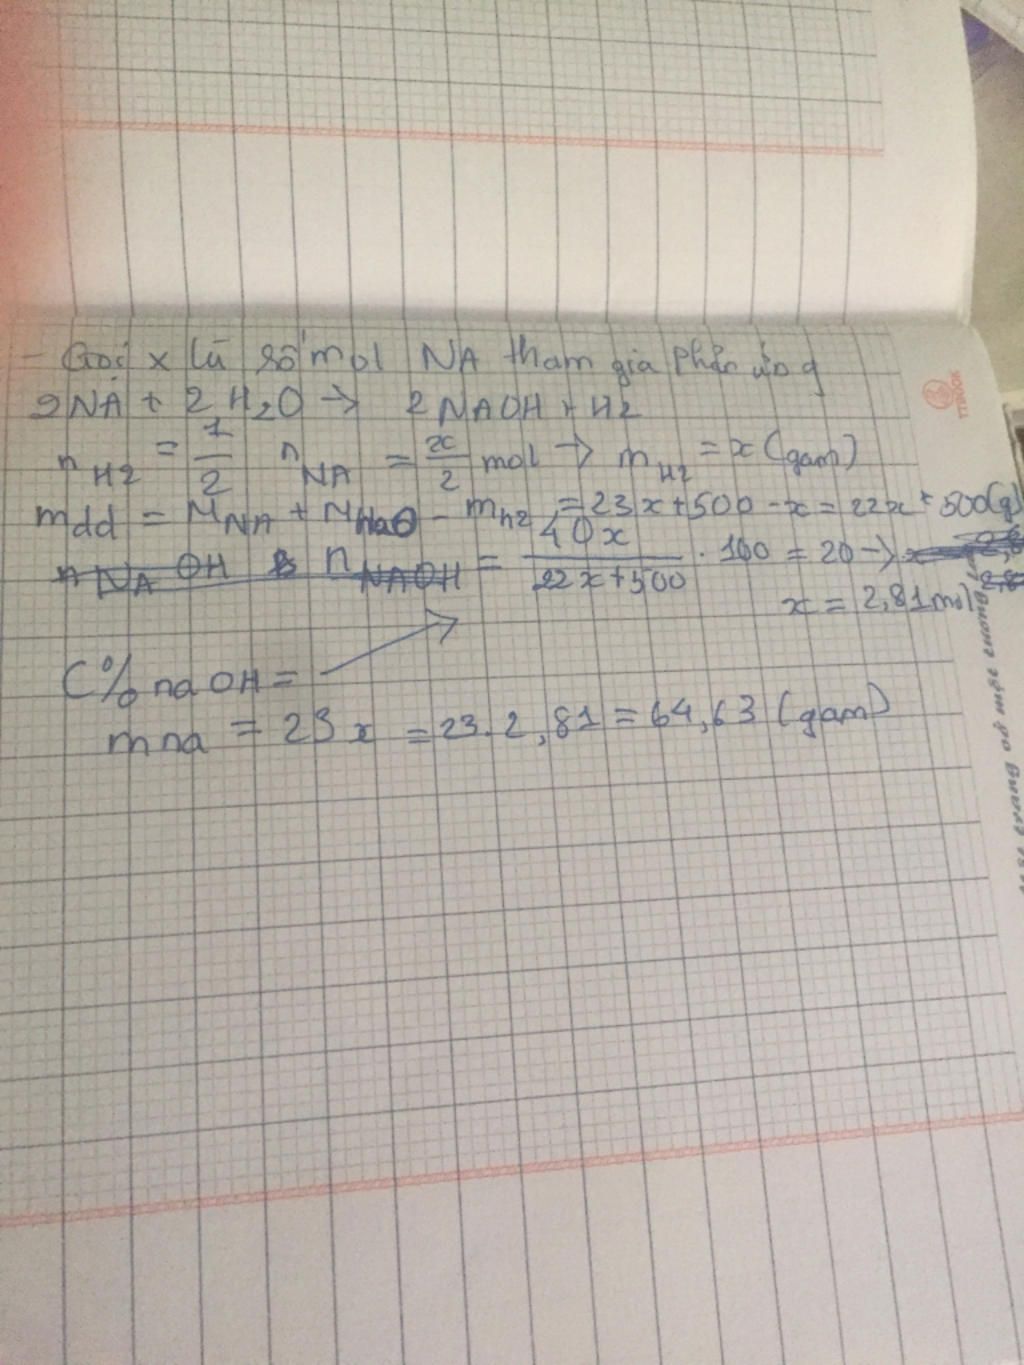 - Gọi x là số mol NA tham gia phản ứng
2NA + 2H2O → 2NAOH + H2
nH2 = 1/2 nNA = x/2 mol → mH2 = x (gam)
mdd = MNA + MH2O - mH2 = 23x + 500 - x = 22x + 500(g)
nNAOH nNAOH = 40x/22x+500 . 100 = 20 →
x = 2,81 mol
C% naOH =
mna = 23x = 23.2,81 = 64,63 (gam)
TTBOOK